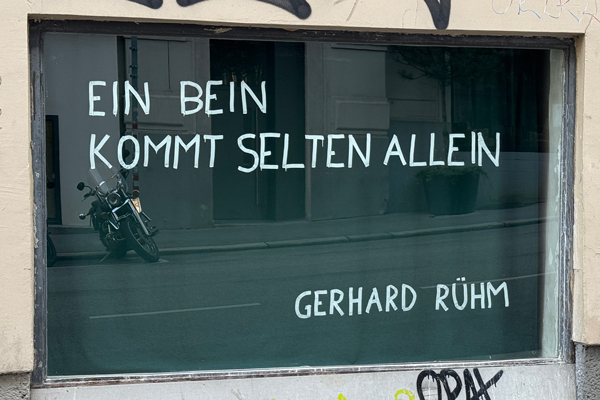 EIN BEIN
KOMMT SELTEN ALLEIN
GERHARD RÜHM